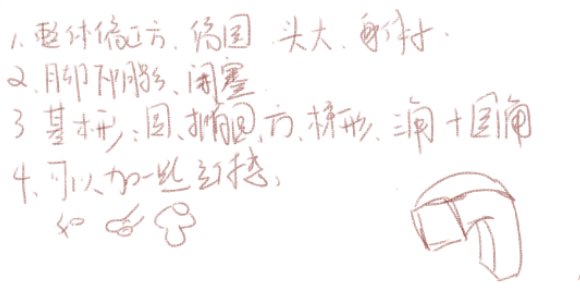 1、整体偏正方、偏圆 头大、身体小.
2、脚下阴影、闭塞
3 基本形:圆、椭圆、方、梯形、三角+圆角
4、可以加一些
如